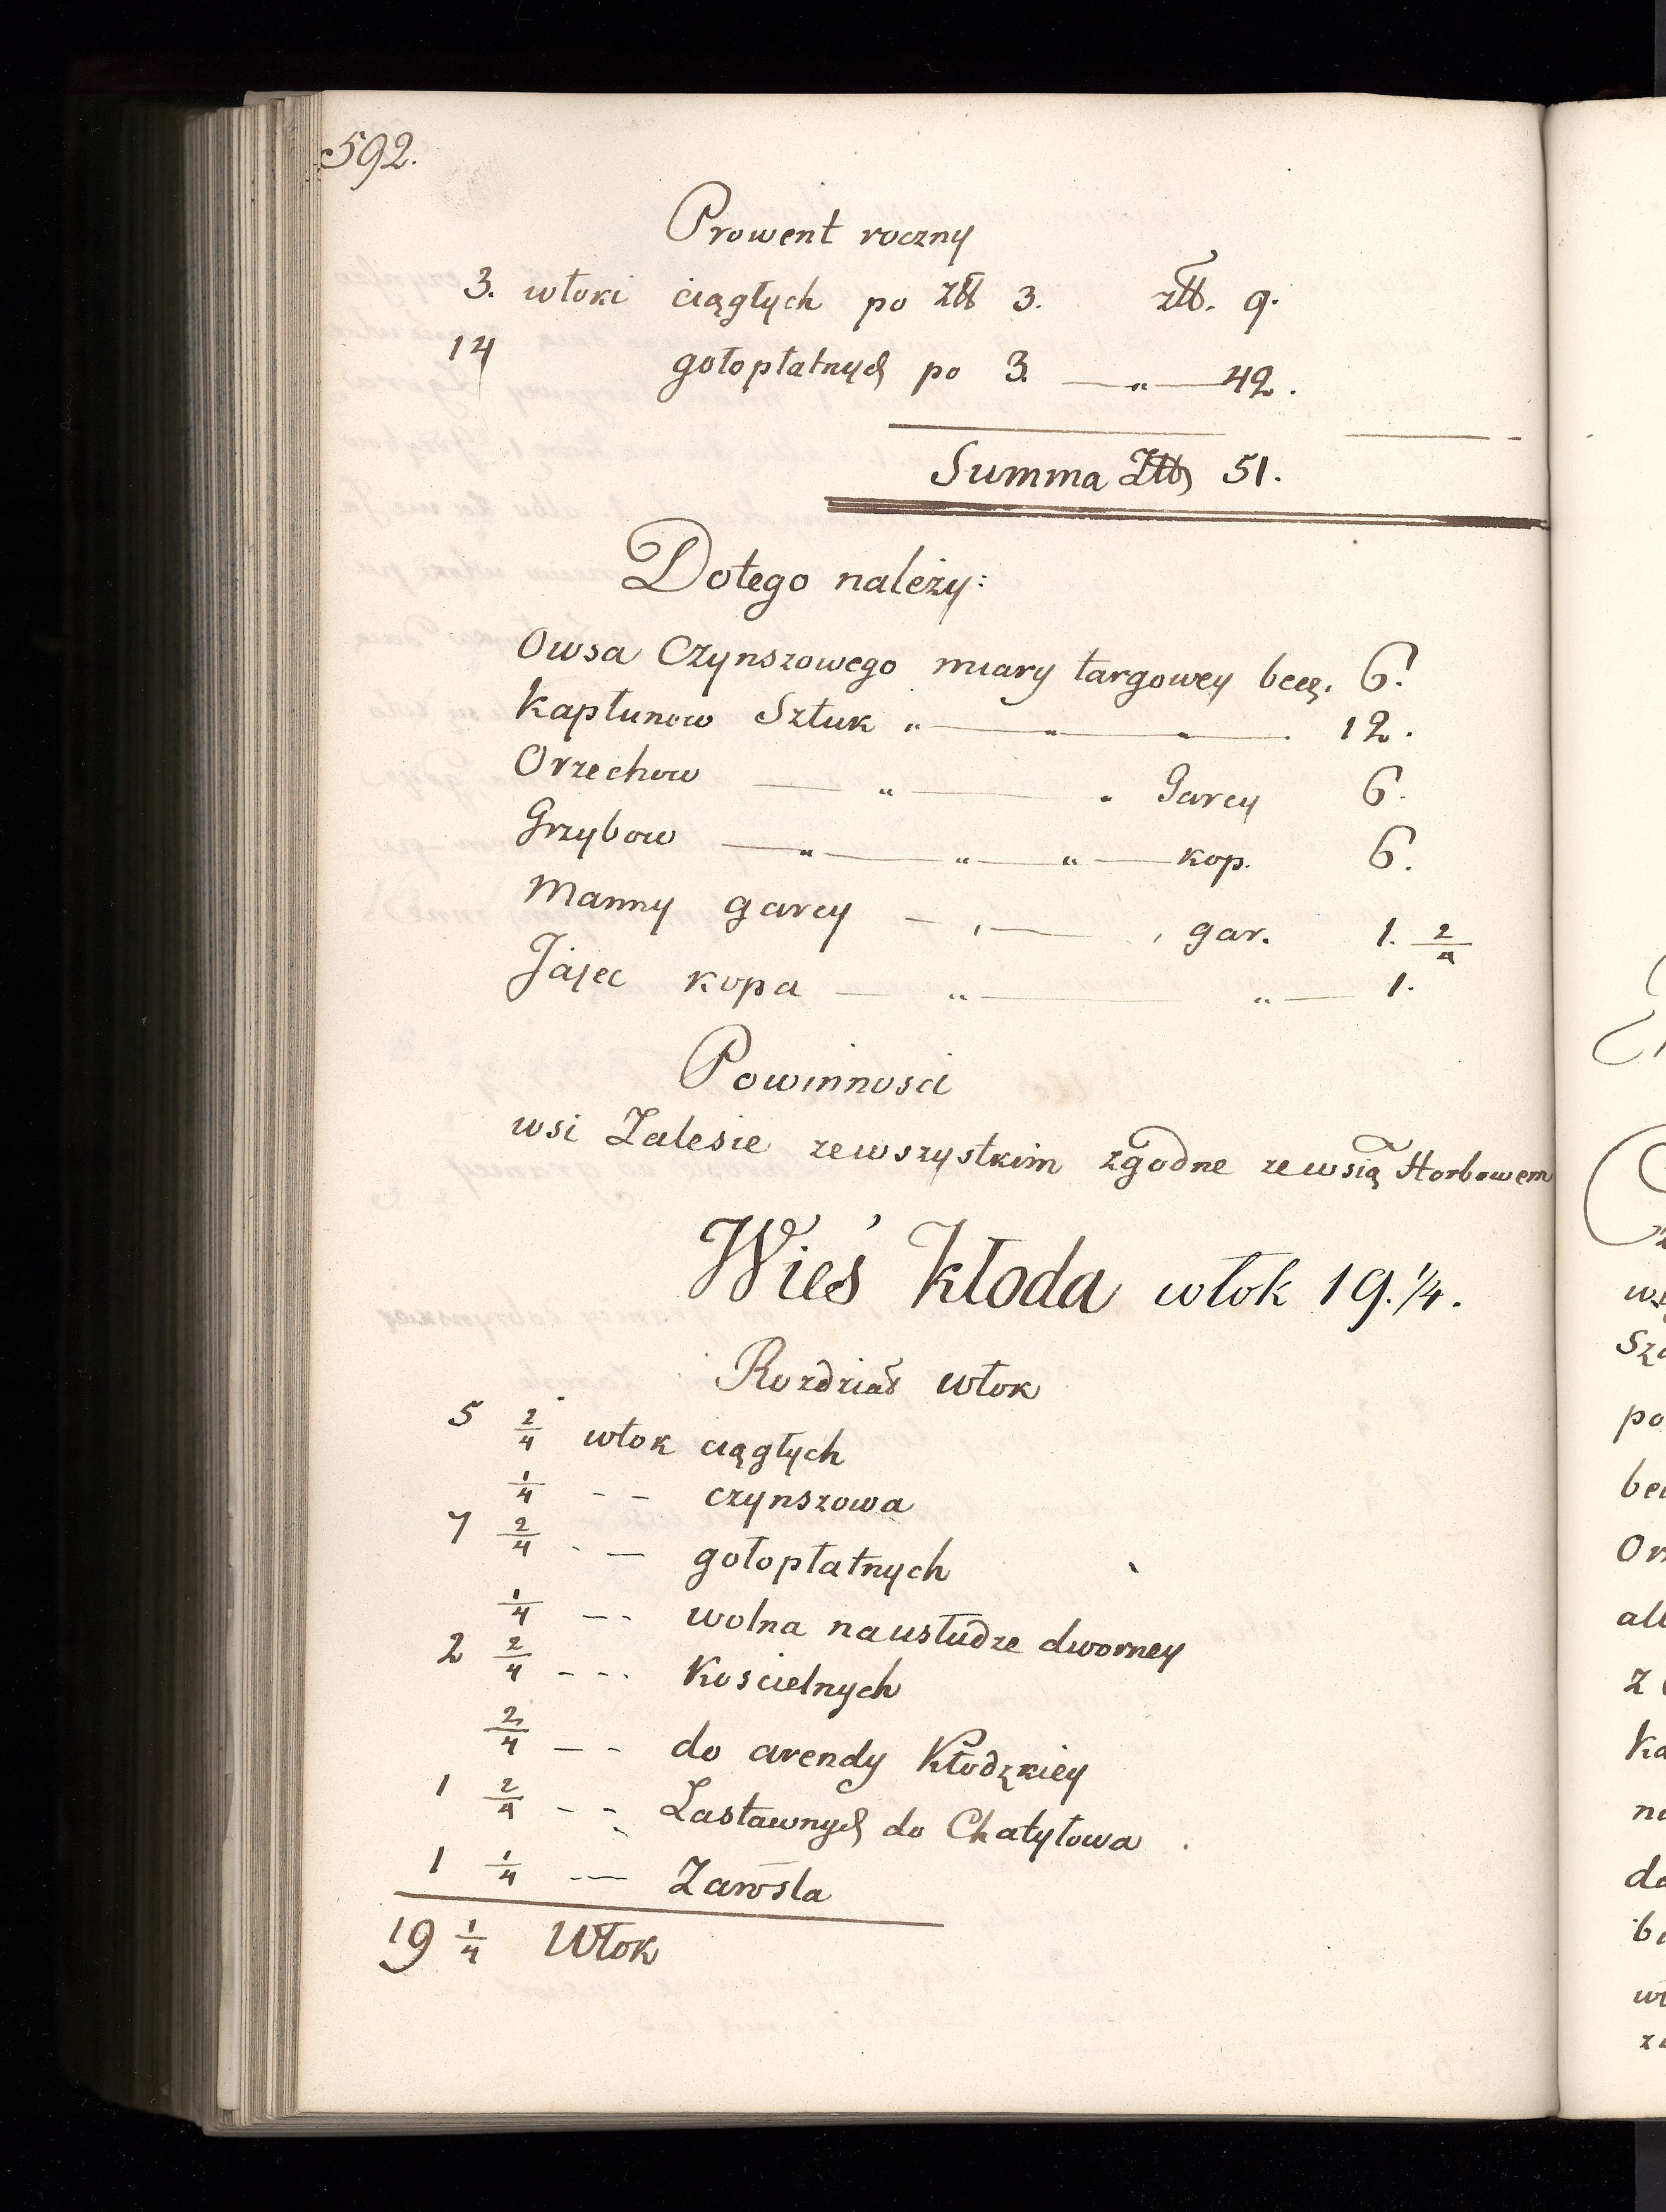 592.
Prowent roczny
3. włoki ciągłych po Złł 3. złł. 9.
14 gołopłatnych po 3. — „ — 42.
Summa Złł 51.
Dotego należy:
Owsa Czynszowego miary targowey becę. 6.
Kapłunow Sztuk „ — „ — „ — . 12.
Orzechow — „ — „ Garcy 6.
Grzybow — „ — „ — „ — kop. 6.
Manny garcy — , — , gar. 1. 2/4
Jajec kopa — „ — „ — 1.
Powinnosci
wsi Zalesie zewszystkim zgodne zewsią Horbowem
Wieś Kłoda włok 19. 1/4.
Rozdział włok
5 2/4 włok ciągłych
1/4 - - czynszowa
7 2/4 - — gołopłatnych
1/4 — - wolna nausłudze dworney
2 2/4 - - - Koscielnych
2/4 — - do arendy Kłodzkiey
1 2/4 - - Zastawnych do Chatyłowa .
1 1/4 - — Zarosla
19 1/4 Włok